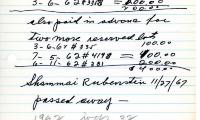 3-6-62 #3318 = 100.00
200.00
also paid in advance for
two more reserved lots
3-6-67 #335 100.00
7-5-62 #4198 = 100.00
6-11-62 #381 = 200.00
$400.00
Shamnai Rubenstein 11/27/67
passed away —
1962